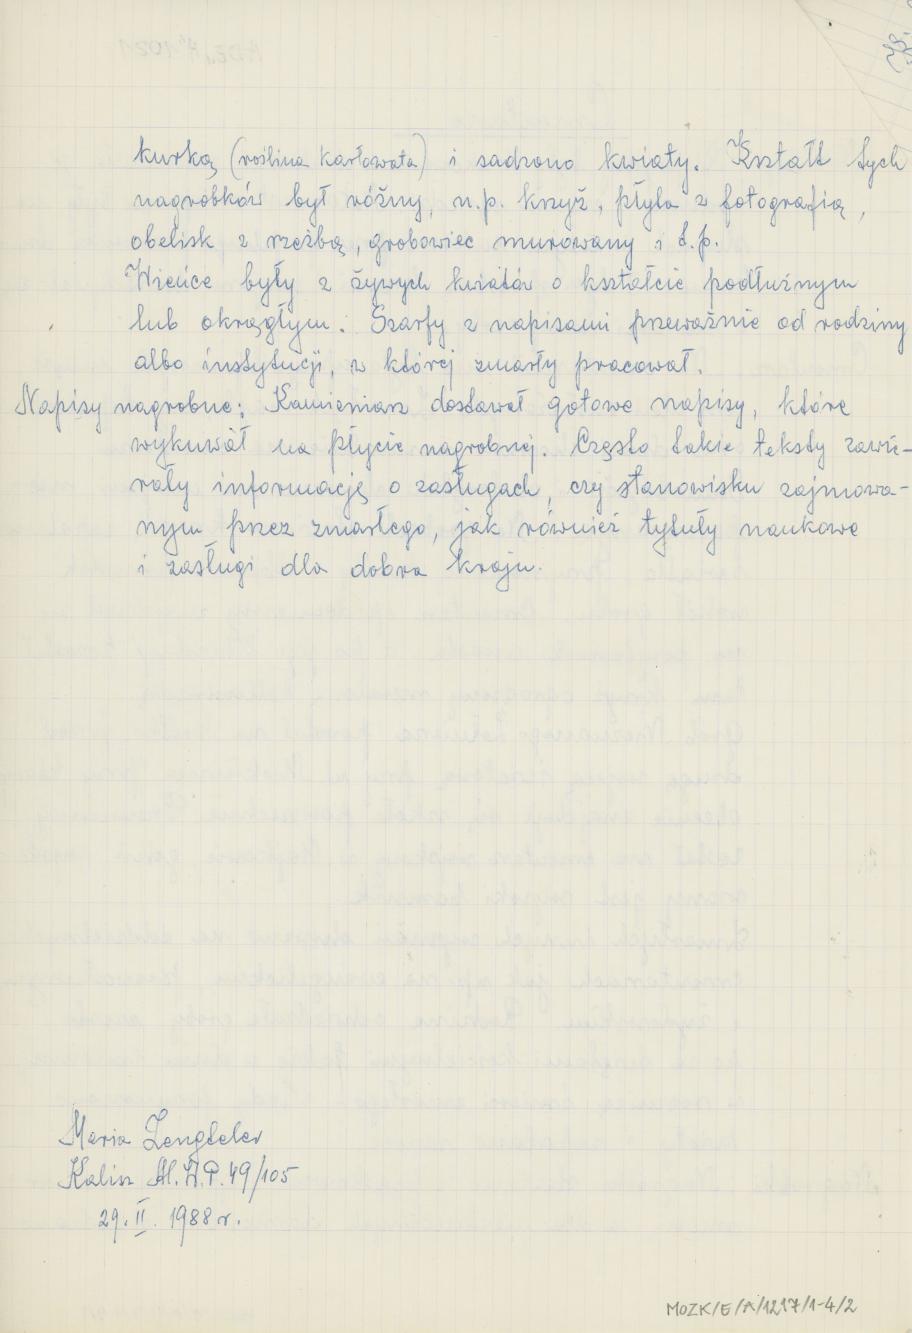 kurką (roślina karłowata) i sadzono kwiaty. Kształt tych
nagrobków był różny, n.p. krzyż, płyta z fotografią,
obelisk z rzeźbą, grobowiec murowany i t.p.
Wieńce były z żywych kwiatów o kształcie podłużnym
lub okrągłym. Szarfy z napisami przeważnie od rodziny
albo instytucji, w której zmarły pracował.
Napisy nagrobne: Kamieniarz dostawał gotowe napisy, które
wykuwał na płycie nagrobnej. Często takie teksty zawie-
rały informację o zasługach, czy stanowisku zajmowa-
nym przez zmarłego, jak również tytuły naukowe
i zasługi dla dobra kraju.
Maria Zengteler
Kalisz Al. W.P. 49/105
29. II. 1988 r.
MOZK/E/A/1217/1-4/2